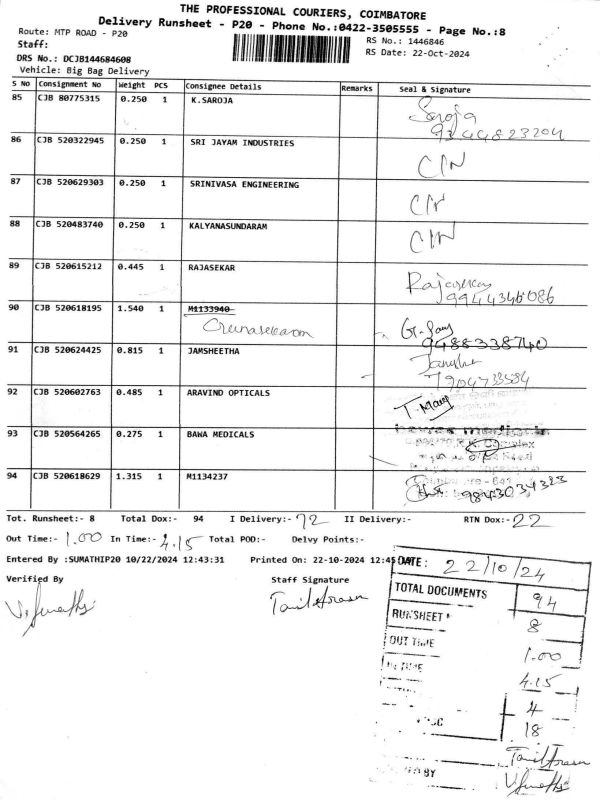 THE PROFESSIONAL COURIERS, COIMBATORE
Delivery Runsheet - P20 - Phone No.:0422-3505555 - Page No.:8
Route: MTP ROAD - P20
RS No.: 1446846
Staff:
RS Date: 22-Oct-2024
DRS No.: DCJB144684608
Vehicle: Big Bag Delivery
S No Consignment No Weight PCS Consignee Details Remarks Seal & Signature
85 CJB 80775315 0.250 1 K.SAROJA Saroja
9344823204
86 CJB 520322945 0.250 1 SRI JAYAM INDUSTRIES C/N
87 CJB 520629303 0.250 1 SRINIVASA ENGINEERING C/N
88 CJB 520483740 0.250 1 KALYANASUNDARAM C/N
89 CJB 520615212 0.445 1 RAJASEKAR Rajasekar
9944346086
90 CJB 520618195 1.540 1 M1133940
9488338740
91 CJB 520624425 0.815 1 JAMSHEETHA
7904733584
92 CJB 520602763 0.485 1 ARAVIND OPTICALS
93 CJB 520564265 0.275 1 BAWA MEDICALS
94 CJB 520618629 1.315 1 M1134237 9843034323
Tot. Runsheet:- 8 Total Dox:- 94 I Delivery:- 72 II Delivery:- RTN Dox:- 22
Out Time:- 1.00 In Time:- 4.15 Total POD:- Delvy Points:-
Entered By :SUMATHIP20 10/22/2024 12:43:31 Printed On: 22-10-2024 12:45
Verified By Staff Signature
V. Sumathi Tamilarasan
DATE: 22/10/24
TOTAL DOCUMENTS 94
RUNSHEET 8
OUT TIME 1.00
IN TIME 4.15
4
18
Tamilarasan
BY V. Sumathi